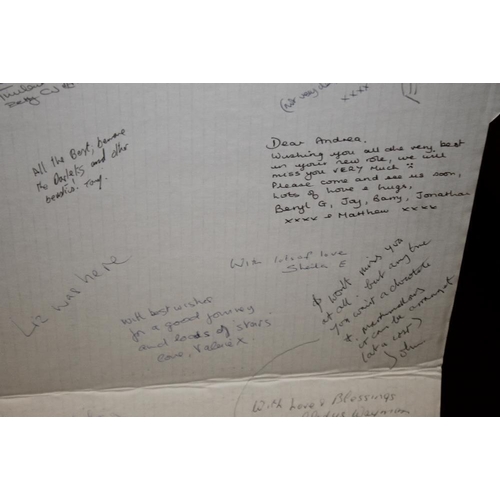 (Not very
xxxx
All the Best, beware
the Darleks and other
beasties! Tony.
Dear Andrea,
Wishing you all the very best
in your new role, we will
miss you VERY Much
Please come and see us soon,
Lots of Love & hugs,
Beryl G, Jay, Barry, Jonathan
xxxx & Matthew xxxx
With lots of love
Sheila E
Liz was here
With best wishes
for a good journey
and loads of stars
love, Valerie x.
I won't miss you
at all - but any time
you want a chocolate
it can be arranged
(at a cost)
John
With Love & Blessings